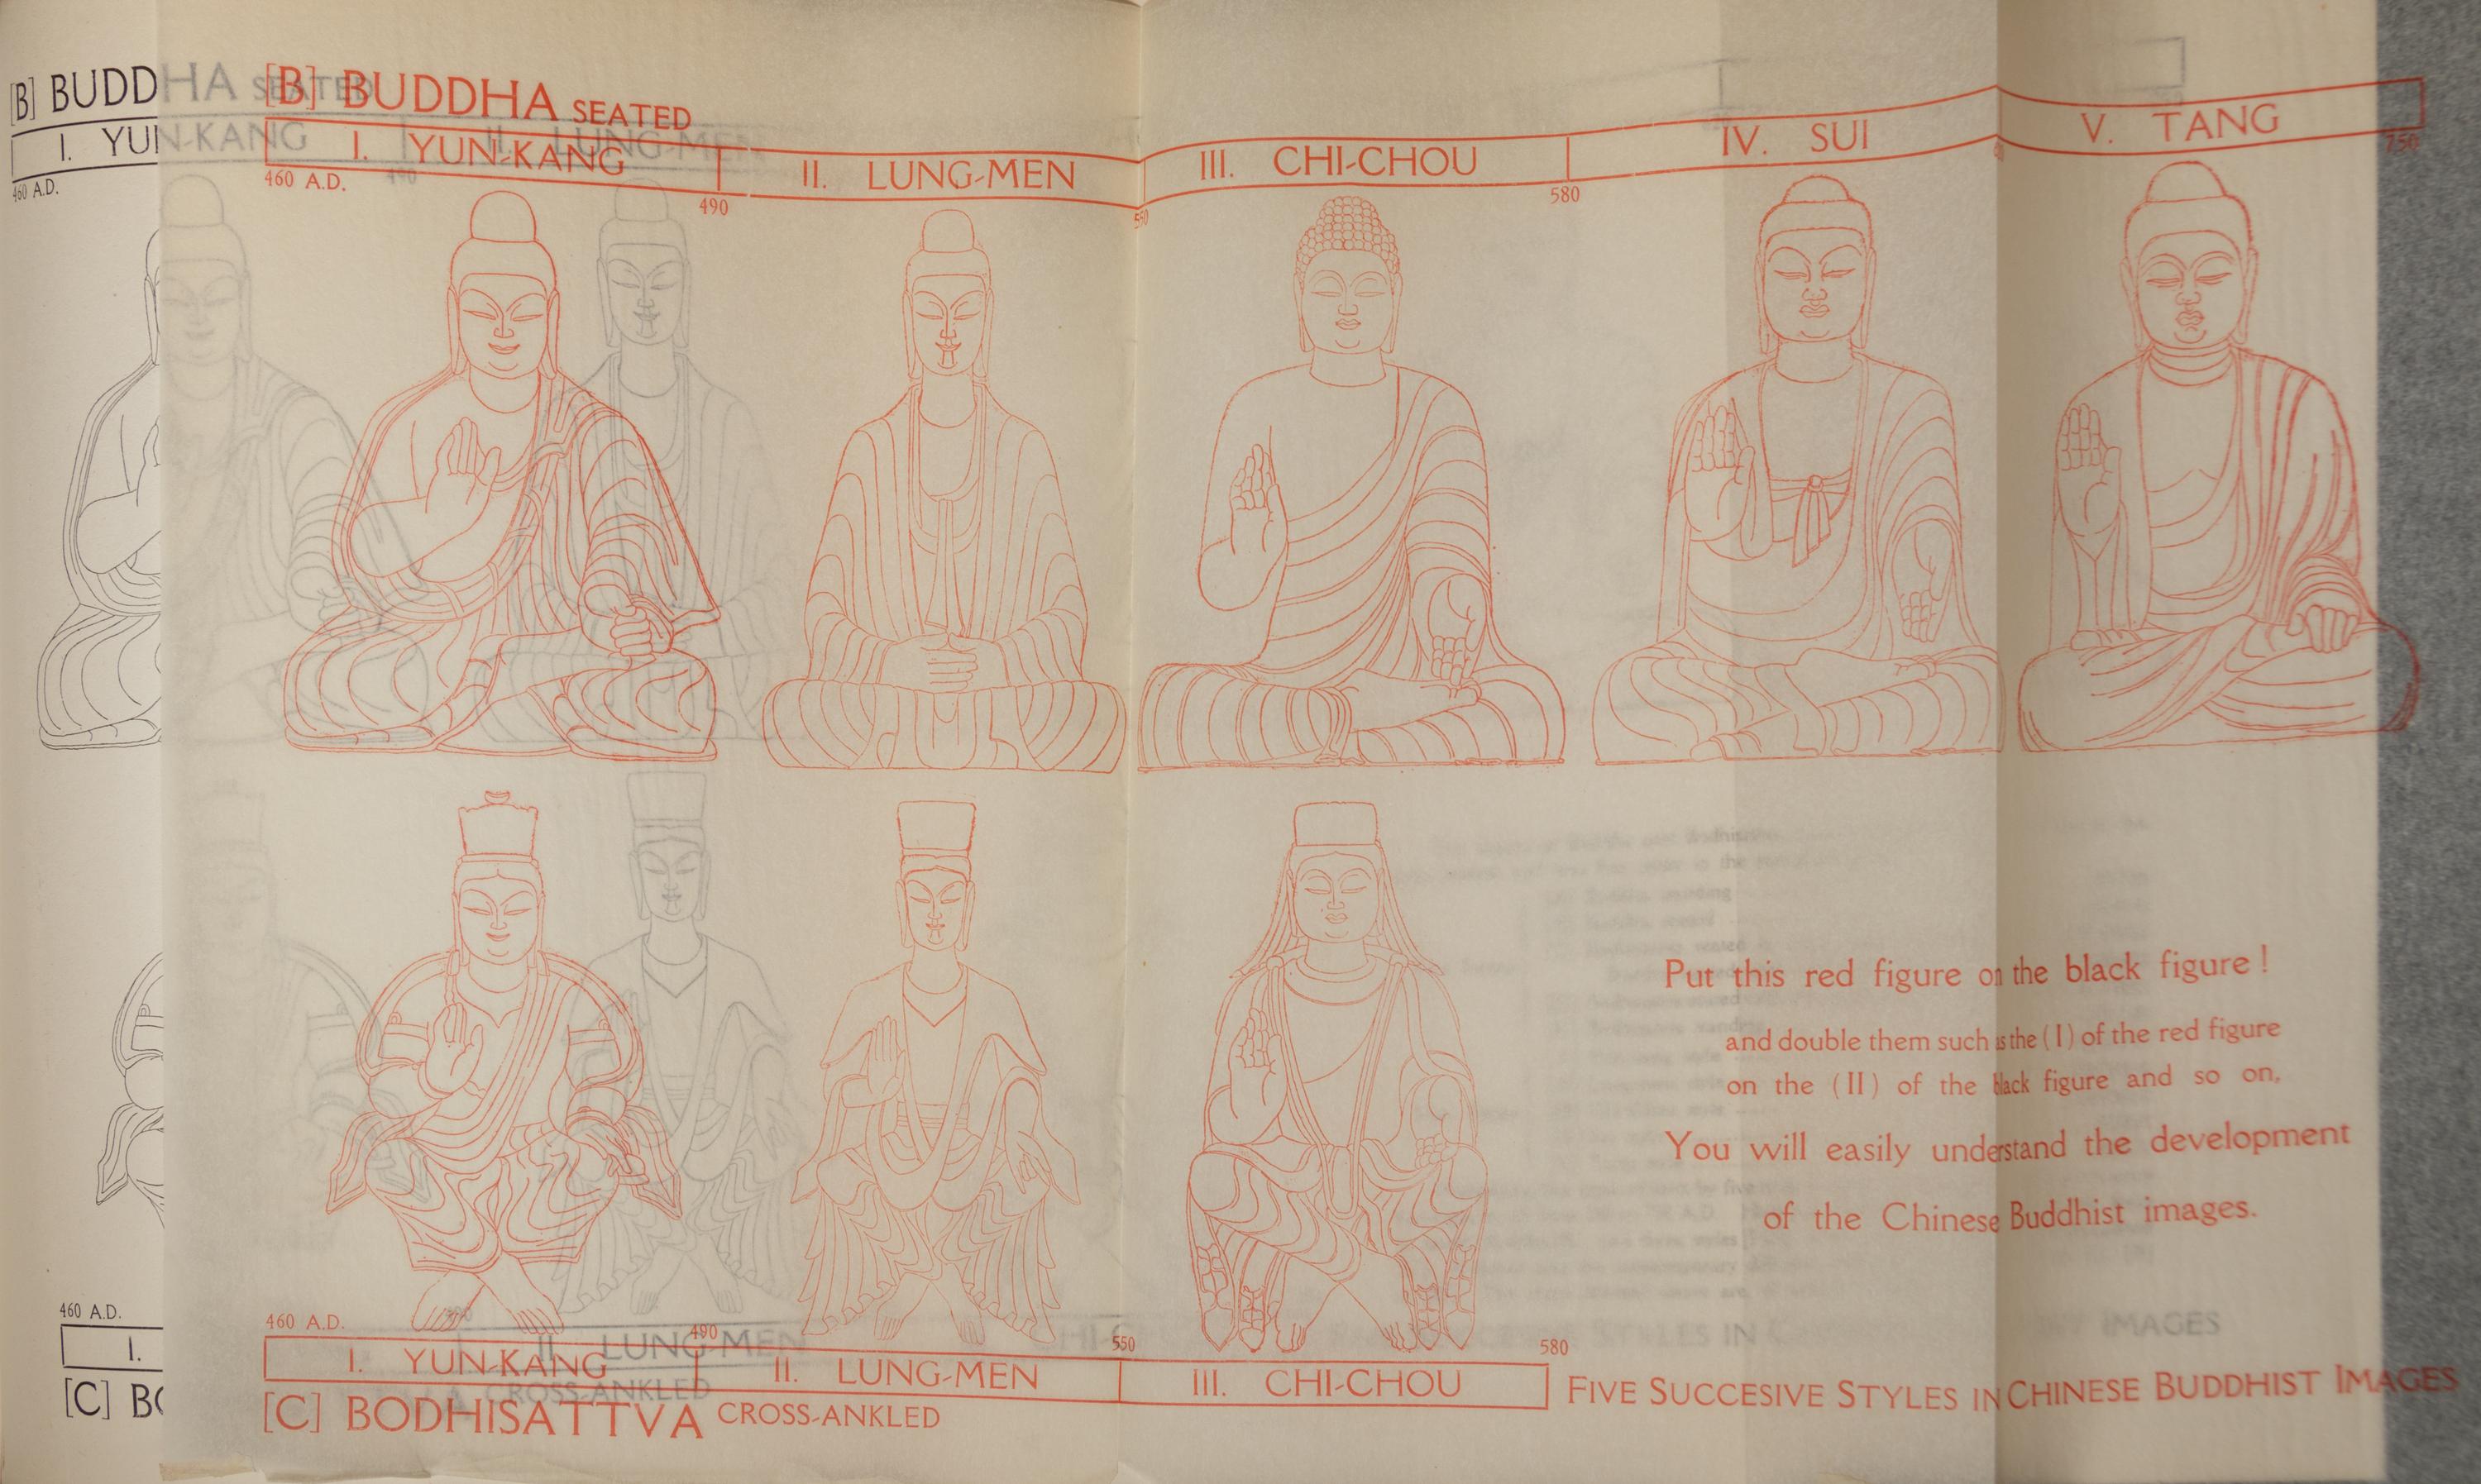 [B] BUDDHA SEATED
I. YUN-KANG
460 A.D.
490
II. LUNG-MEN
[B] BUDDHA SEATED
I. YUN-KANG
II. LUNG-MEN
III. CHI-CHOU
IV. SUI
V. TANG
460 A.D.
490
550
580
750
Put this red figure on the black figure !
and double them such as the (I) of the red figure
on the (II) of the black figure and so on,
You will easily understand the development
of the Chinese Buddhist images.
460 A.D.
490
I.
II. LUNG-MEN
[C] BO
CROSS-ANKLED
460 A.D.
490
550
580
I. YUN-KANG
II. LUNG-MEN
III. CHI-CHOU
[C] BODHISATTVA CROSS-ANKLED
FIVE SUCCESIVE STYLES IN CHINESE BUDDHIST IMAGES